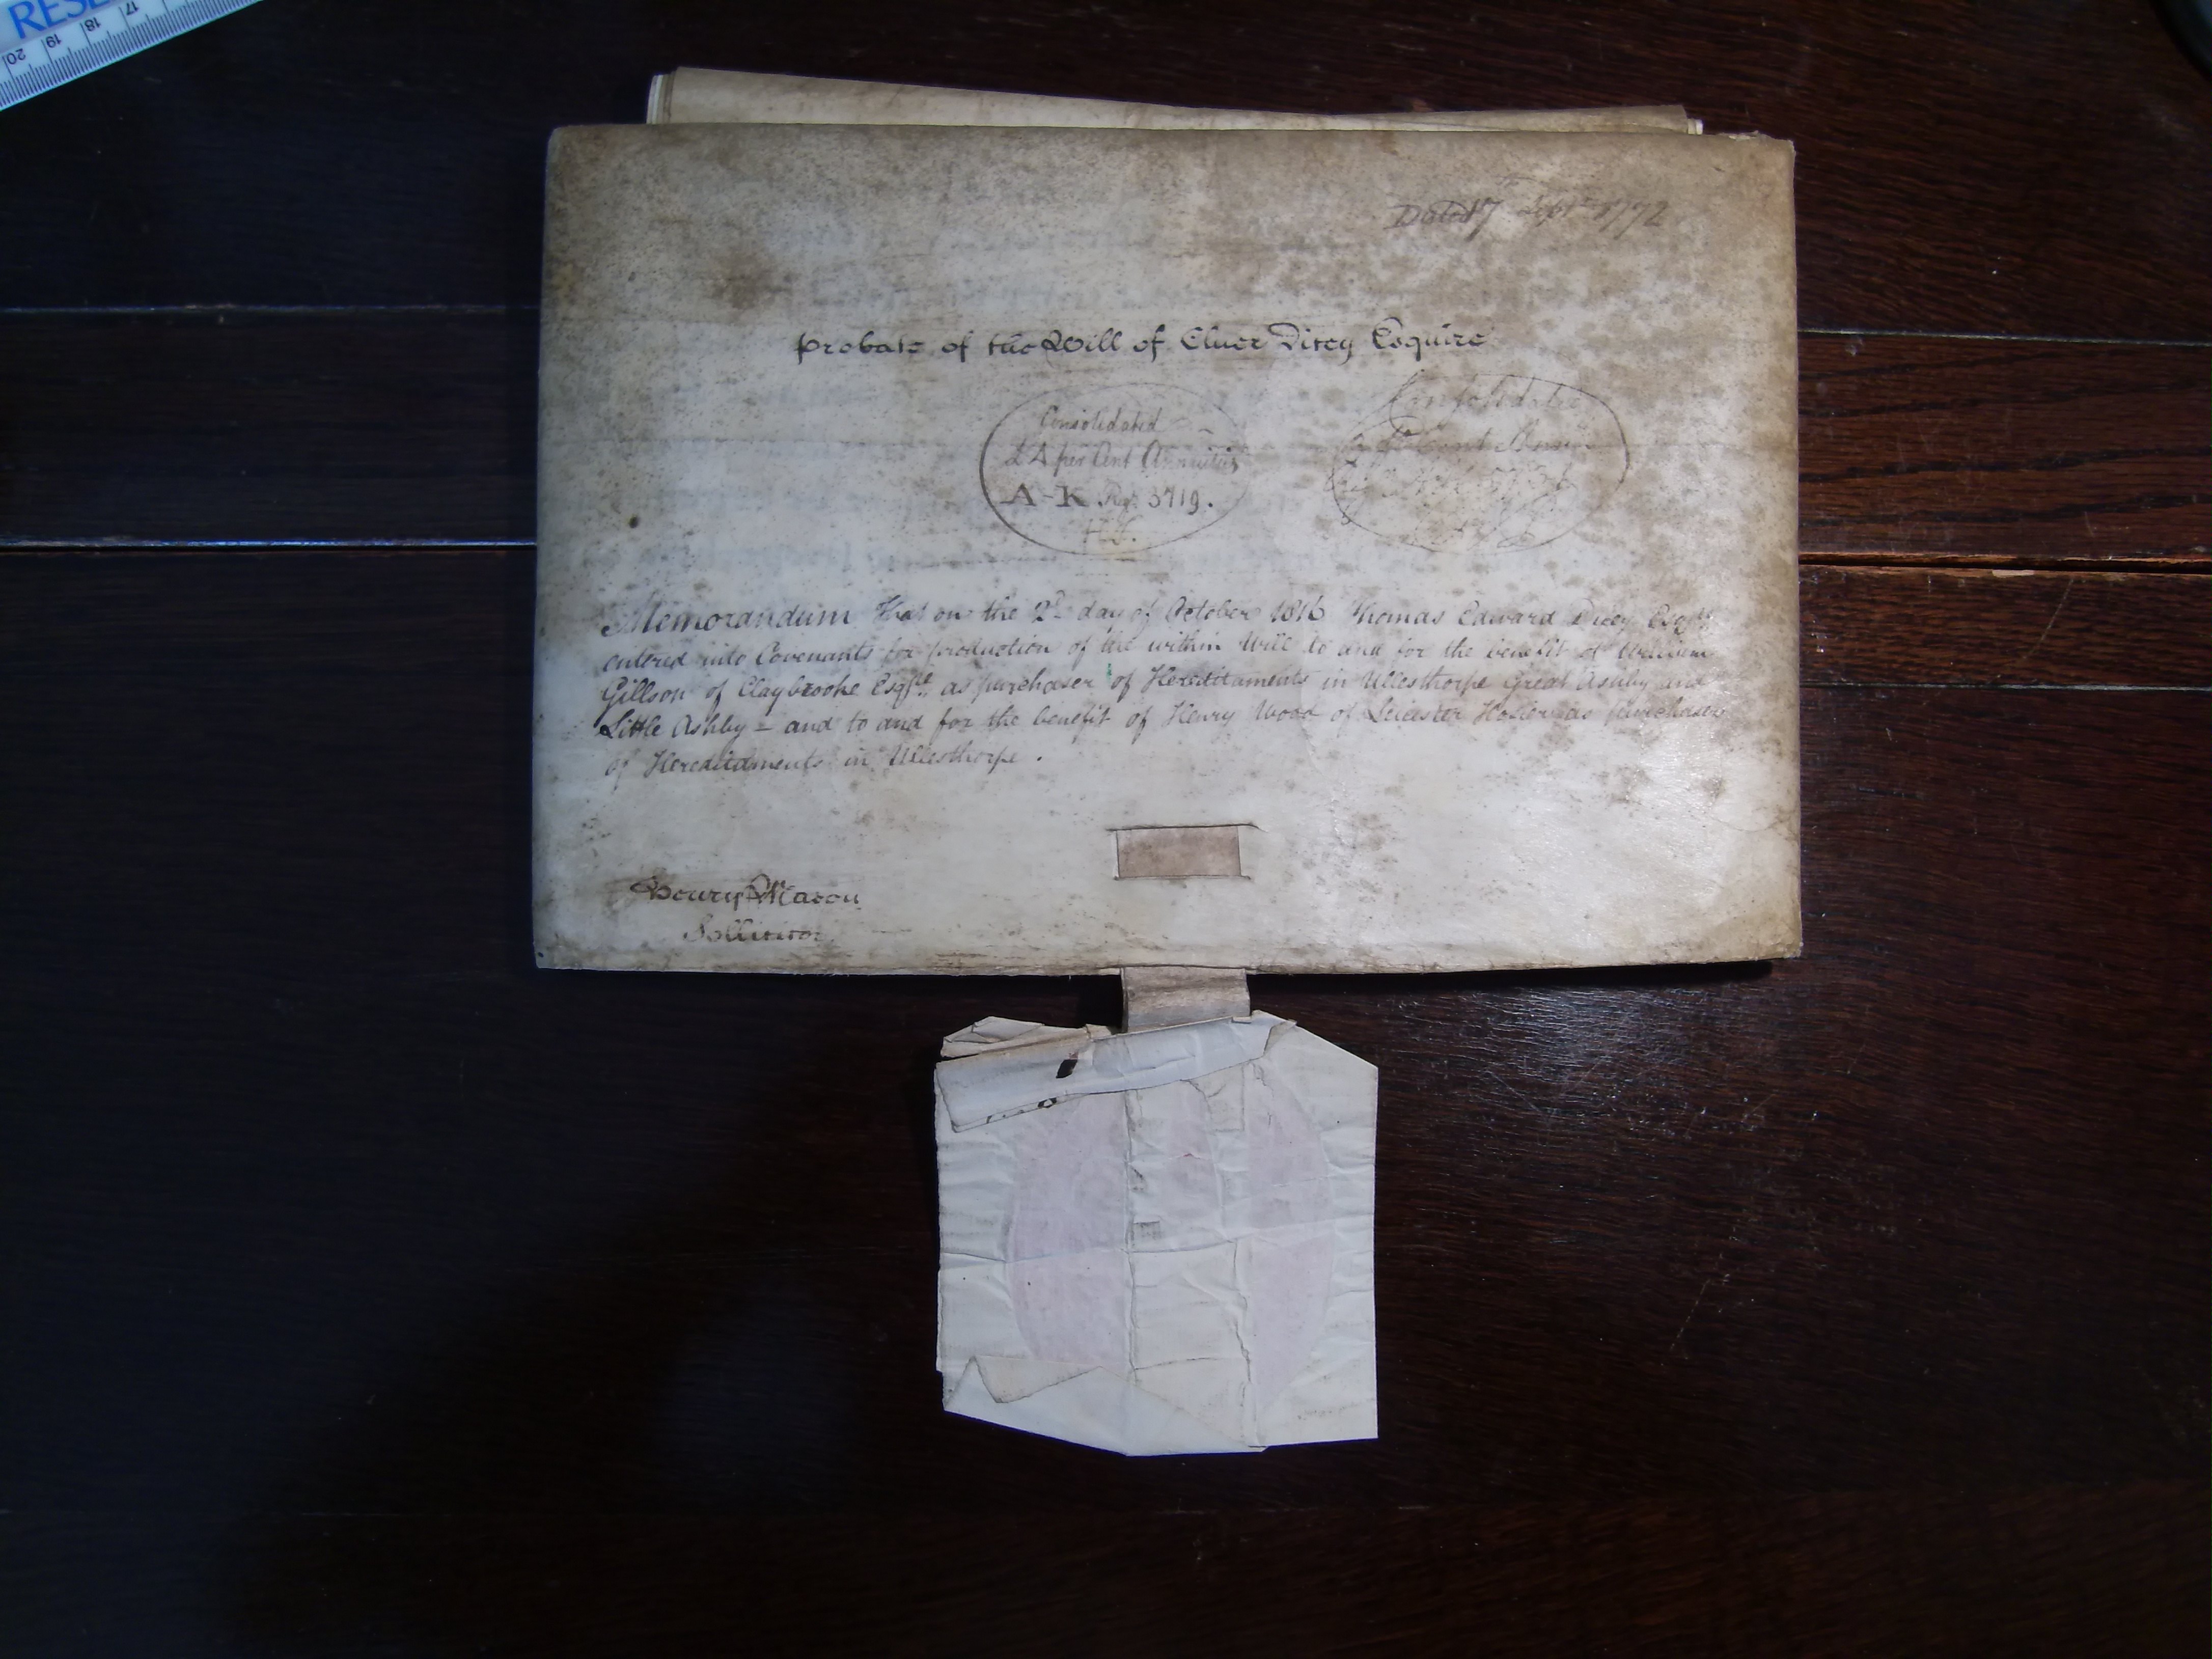 RESE
20 19 18 17
Dated 17th Septr 1772
Probate of the Will of Cluer Dicey Esquire
Consolidated
£4 per Cent Annuities
A-K Regr. 3719.
Consolidated
Memorandum that on the 2d day of October 1816 Thomas Edward Dicey Esqre
entered into Covenants for production of the within Will to and for the benefit of William
Gillson of Claybrooke Esqre as purchaser of Hereditaments in Ullesthorpe Great Ashby and
Little Ashby - and to and for the benefit of Henry Wood of Leicester Hosier as purchaser
of Hereditaments in Ullesthorpe.
Mason
Sollicitor